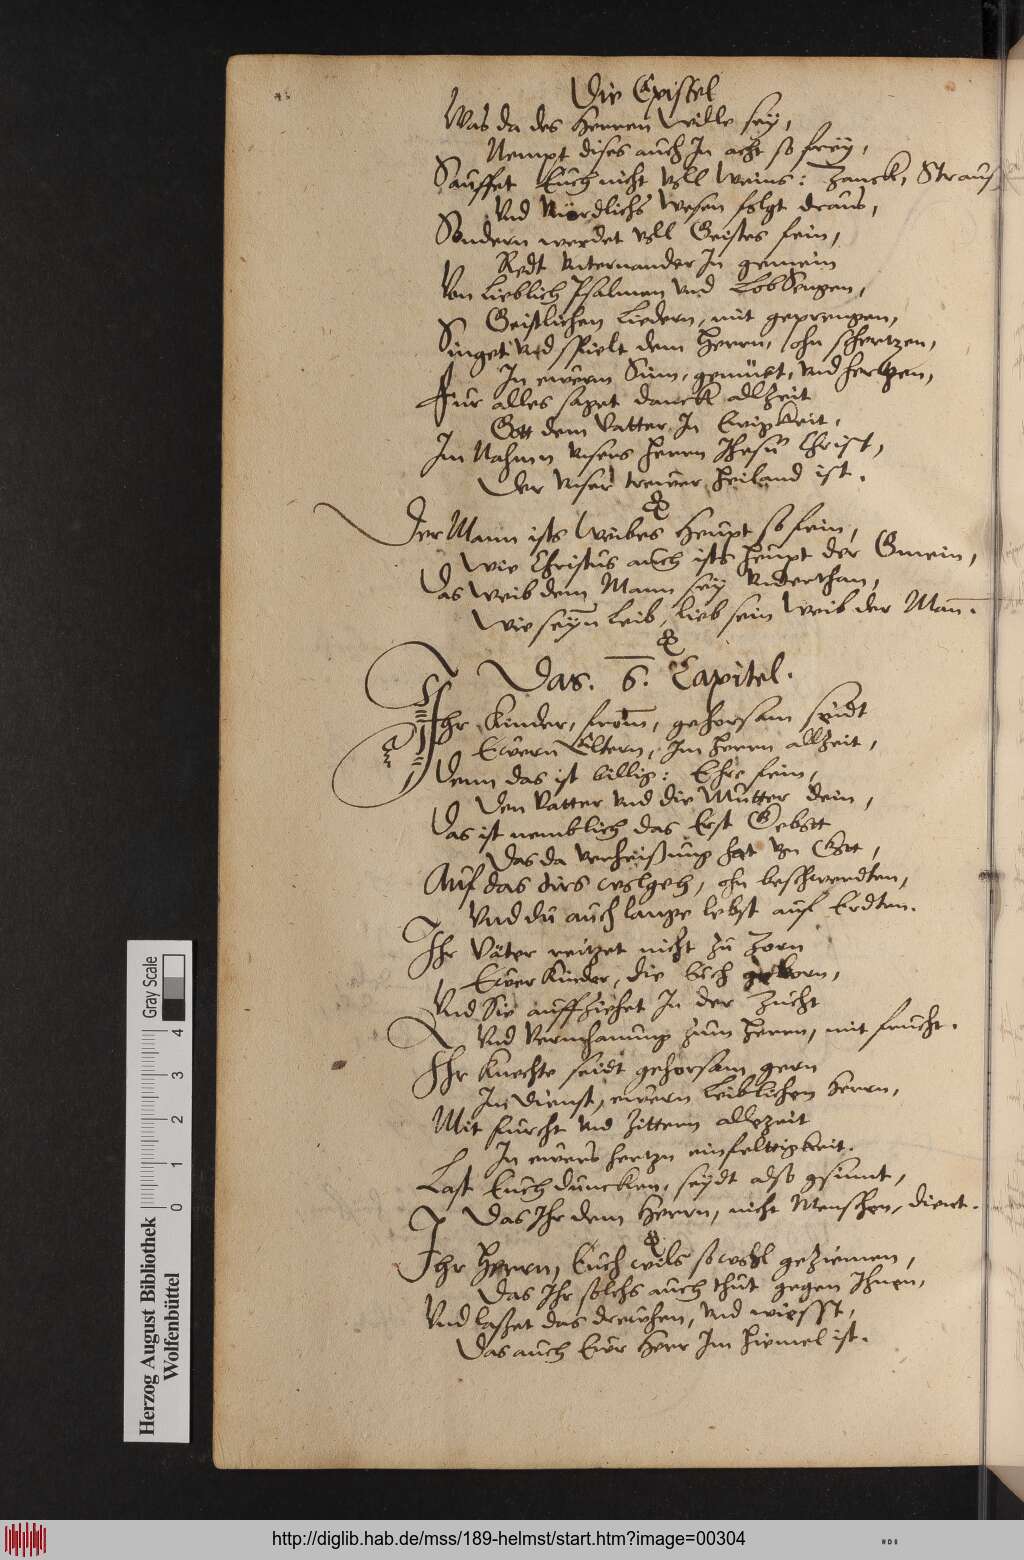 Die Epistel
Was da des Herren wille sey,
Nempt dises auch In acht so frey,
Sauffet Euch nicht voll Weins: Zanck, Straus
Vnd Vnördlichs Wesen folgt draus,
Sondern werdet voll Geistes fein,
Redt Vnternander In gemein
Von Lieblich Psalmen Vnd LobSengen,
Geistlichen Liedern, mit geprengen,
Singet Vnd spielt dem Herrn, ohn schertzen,
In ewerm Sinn, gemüet, Vnd hertzen,
Fur alles saget danck allzeit
Gott dem Vatter In Ewigkeit,
Im Nahmen Vnsers Herrn Jhesu Christ,
Der Vnser trewer Heiland ist.
Der Mann ists Weibes Heupt so fein,
Wie Christus auch ists heupt der Gmein,
Das Weib dem Mann sey Vnderthan,
Wie seyn Leib, lieb sein Weib der Man̄.
Das. 6. Capitel.
Ihr Kinder, from̄, gehorsam seidt
Ewern Eltern, Im Herrn allzeit,
Denn das ist billig: Ehre fein,
Den Vatter Vnd die Mutter dein,
Das ist nemblich das Erst Gebott
Das da Verheißung hat Von Gott,
Auf das dirs wolgeh, ohn beschwerdten,
Vnd du auch lange lebst auf Erdten.
Ihr Väter reitzet nicht zu Zorn
Ewer Kinder, die Euch geborn,
Vnd Sie auffziehet In der Zucht
Vnd Vermhanung zum Herrn, mit frucht.
Ihr Knechte seidt gehorsam gern
In Dienst, ewern Leiblichen Herrn,
Mit furcht Vnd Zittern allezeit
In ewers hertzn einfelttigkeit.
Last Euch duncken, seydt also gsinnt,
Das Ihr dem Herrn, nicht Menschen, dient.
Ihr Herrn, Euch wils so wohl geziemen,
Das Ihr solchs auch thut gegen Ihnen,
Vnd laßet das drewhen, Vnd wisst,
Das auch Ewr Herr Im Himel ist.
Herzog August Bibliothek
Wolfenbüttel
Gray Scale
0 1 2 3 4
http://diglib.hab.de/mss/189-helmst/start.htm?image=00304